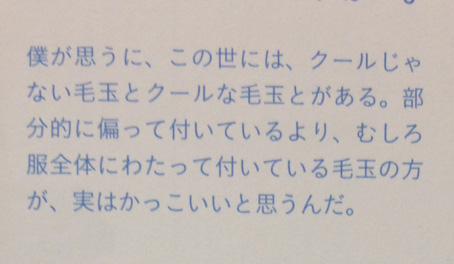 僕が思うに、この世には、クールじゃ
ない毛玉とクールな毛玉とがある。部
分的に偏って付いているより、むしろ
服全体にわたって付いている毛玉の方
が、実はかっこいいと思うんだ。